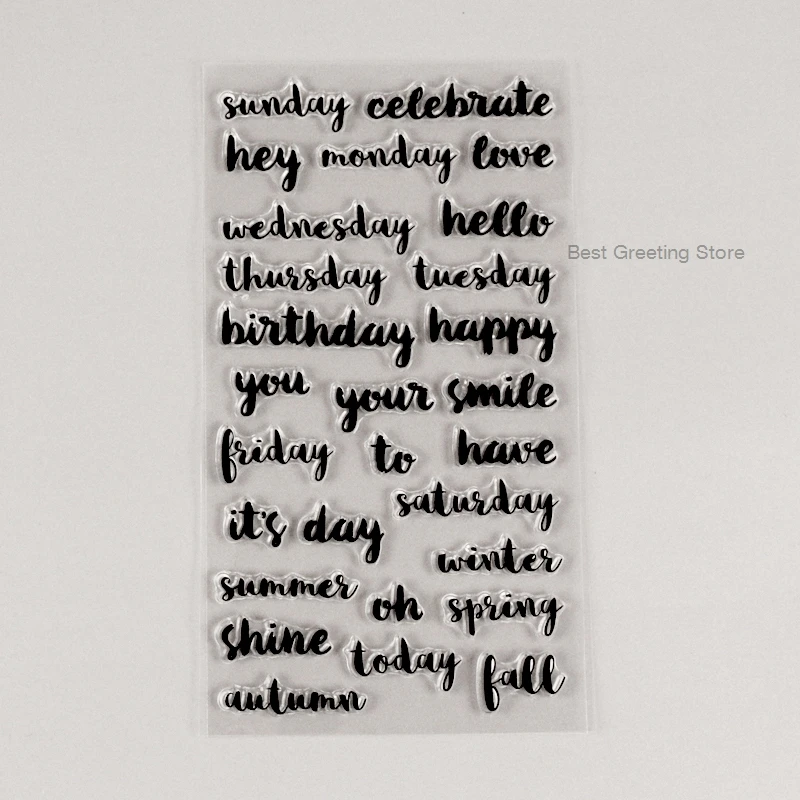 sunday celebrate
hey monday love
wednesday hello
Best Greeting Store
thursday tuesday
birthday happy
you your smile
friday to have
saturday
it's day
winter
summer oh spring
shine today fall
autumn